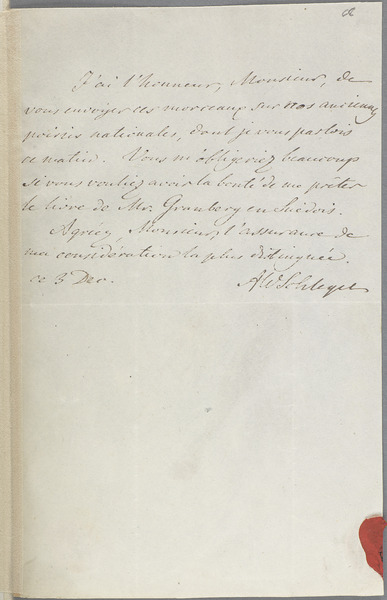 J'ai l'honneur, Monsieur, de
vous envoyer ces morceaux sur nos anciennes
poésies nationales, dont je vous parlois
ce matin. Vous m'obligeriez beaucoup
si vous vouliez avoir la bonté de me prêter
le livre de Mr. Granberg en Suédois.
Agréez, Monsieur, l'assurance de
ma considération la plus distinguée.
ce 3 Dec. AWSchlegel